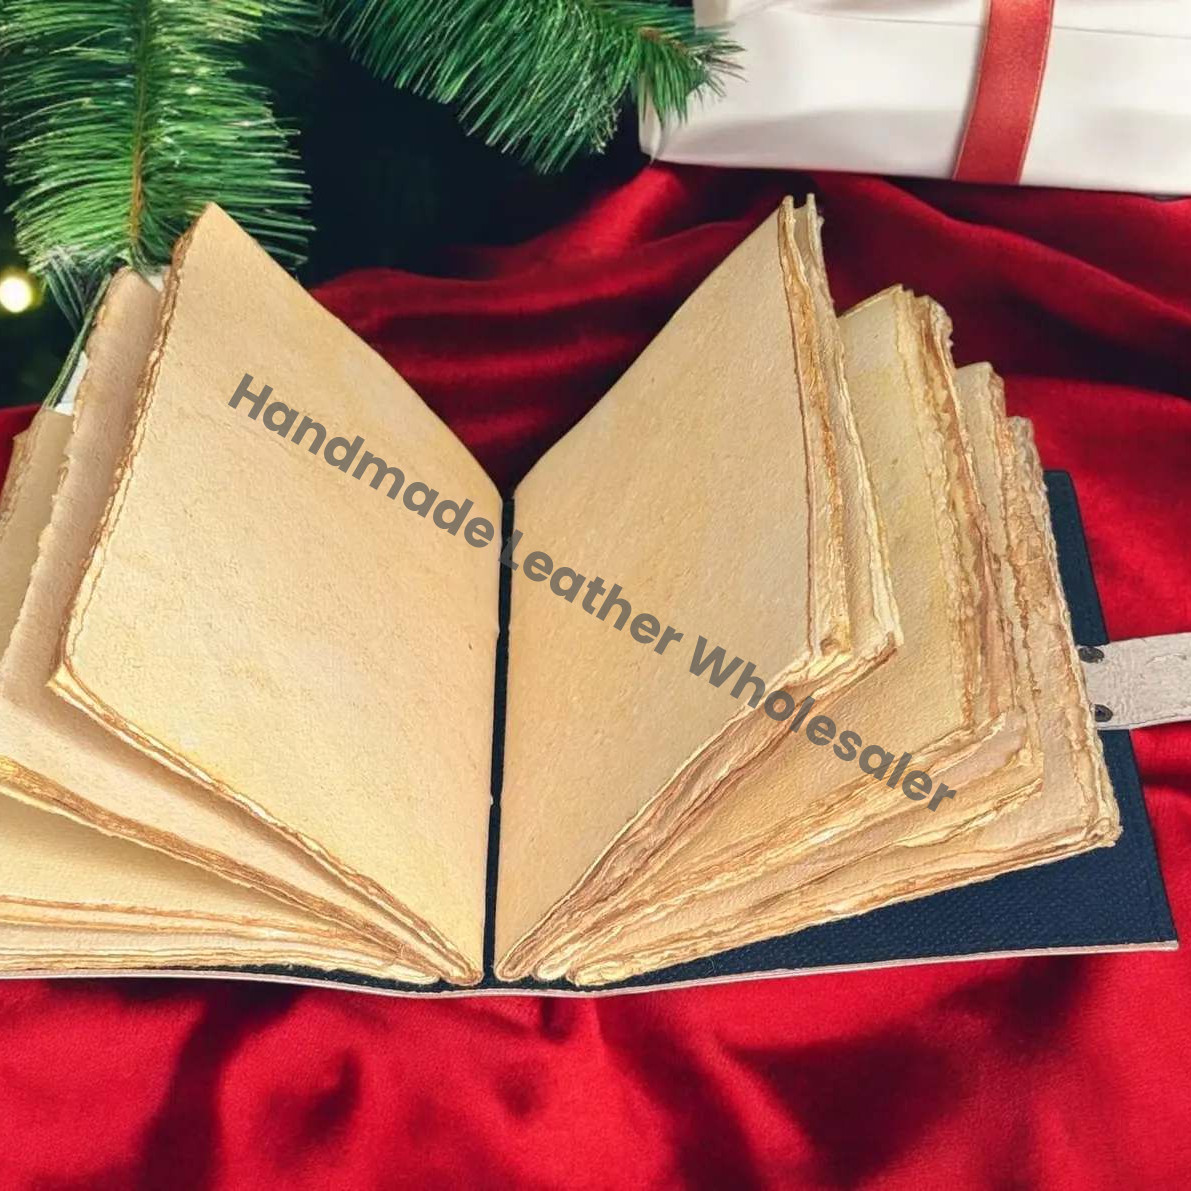 Handmade Leather Wholesaler